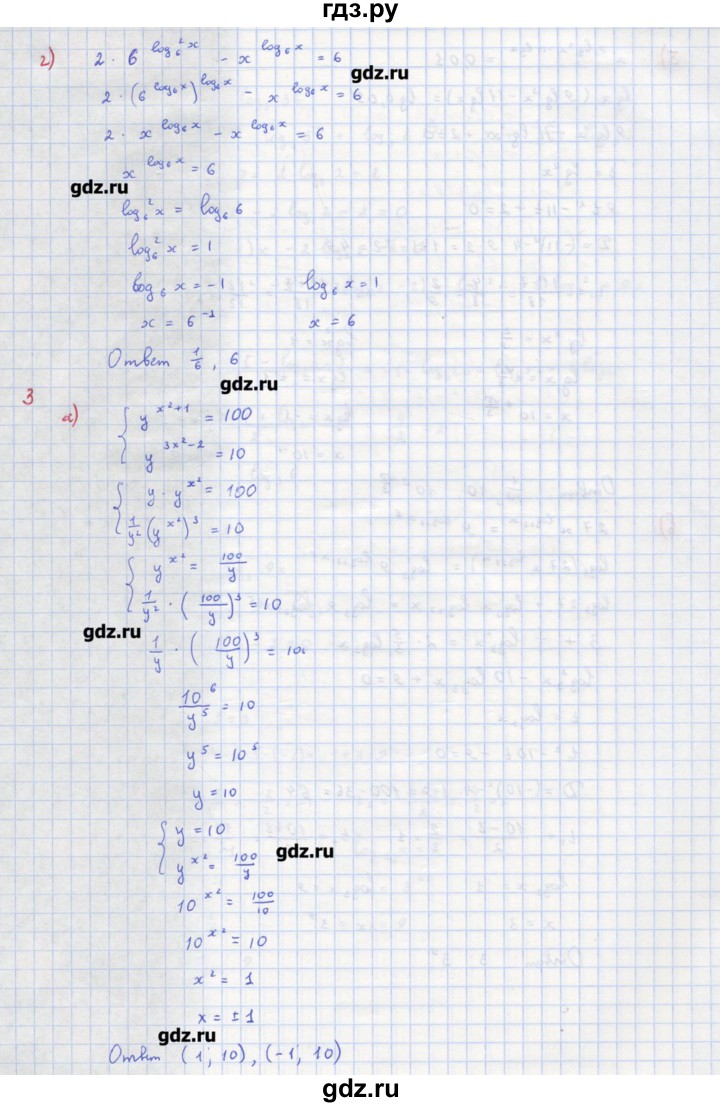 гдз.ру
г) 2 · 6^{log₆²x} − x^{log₆x} = 6
gdz.ru
2 · (6^{log₆x})^{log₆x} − x^{log₆x} = 6
2 · x^{log₆x} − x^{log₆x} = 6
x^{log₆x} = 6
gdz.ru
log₆²x = log₆6
log₆²x = 1
log₆x = −1 log₆x = 1
x = 6⁻¹ x = 6
Ответ 1/6, 6
gdz.ru
3
а) { y^{x²+1} = 100
y^{3x²−2} = 10
{ y · y^{x²} = 100
gdz.ru
1/y² (y^{x²})³ = 10
{ y^{x²} = 100/y
1/y² · (100/y)³ = 10
gdz.ru
1/y · (100/y)³ = 10
10⁶/y⁵ = 10
y⁵ = 10⁵
y = 10
{ y = 10
gdz.ru
y^{x²} = 100/y
10^{x²} = 100/10
10^{x²} = 10
x² = 1
x = ±1
gdz.ru
Ответ (1; 10), (−1; 10)
gdz.ru